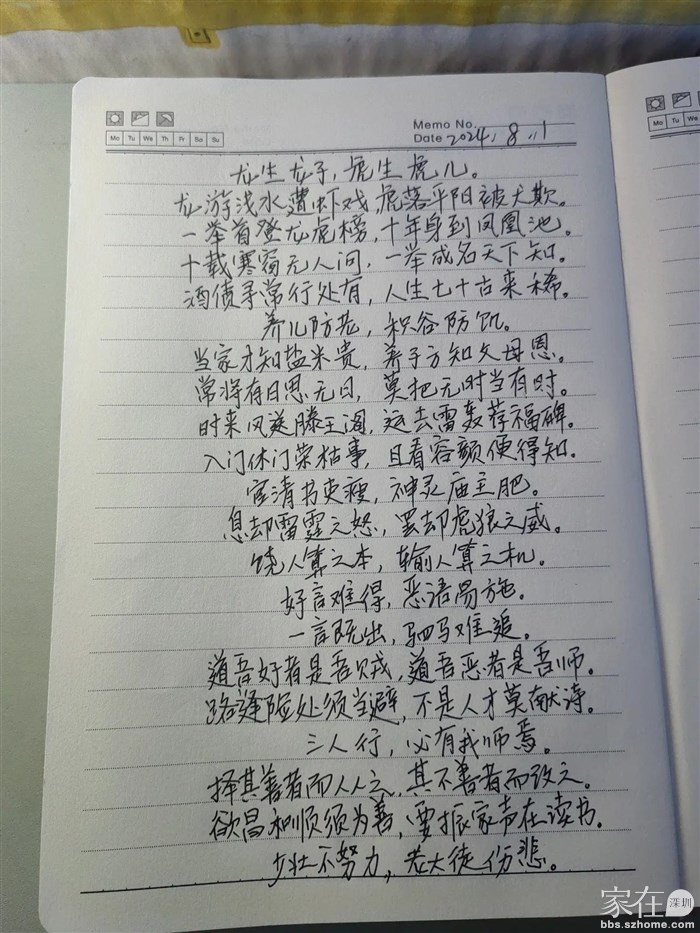 Mo Tu We Th Fr Sa Su
Memo No.
Date 2024. 8. 1
龙生龙子，虎生虎儿。
龙游浅水遭虾戏，虎落平阳被犬欺。
一举首登龙虎榜，十年身到凤凰池。
十载寒窗无人问，一举成名天下知。
酒债寻常行处有，人生七十古来稀。
养儿防老，积谷防饥。
当家才知盐米贵，养子方知父母恩。
常将有日思无日，莫把无时当有时。
时来风送滕王阁，运去雷轰荐福碑。
入门休门荣枯事，且看容颜便得知。
官清书吏瘦，神灵庙主肥。
息却雷霆之怒，罢却虎狼之威。
饶人算之本，输人算之机。
好言难得，恶语易施。
一言既出，驷马难追。
道吾好者是吾贼，道吾恶者是吾师。
路逢险处须当避，不是人才莫献诗。
三人行，必有我师焉。
择其善者而从之，其不善者而改之。
欲昌和顺须为善，要振家声在读书。
少壮不努力，老大徒伤悲。
家在深圳
bbs.szhome.com